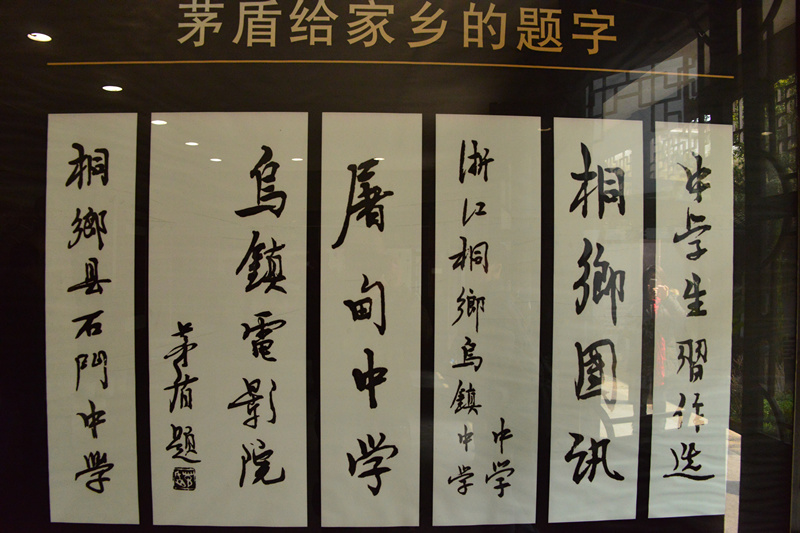 茅盾给家乡的题字
中学生習作选
桐鄉讯
中学
浙江桐鄉烏鎮中学
屠甸中学
烏鎮電影院
茅盾題
桐鄉县石門中学